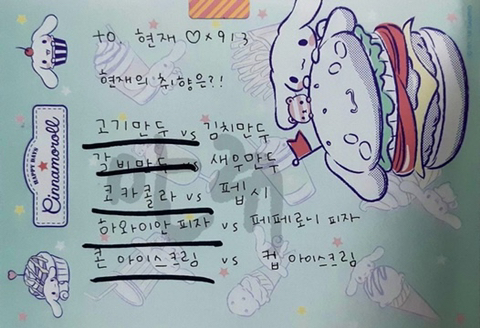 to. 현재 ♡×913
현재의 취향은?!
고기만두 vs 김치만두
갈비만두 vs 새우만두
코카콜라 vs 펩시
하와이안 피자 vs 페페로니 피자
콘 아이스크림 vs 컵 아이스크림
HAPPY DAYS
Cinnamoroll